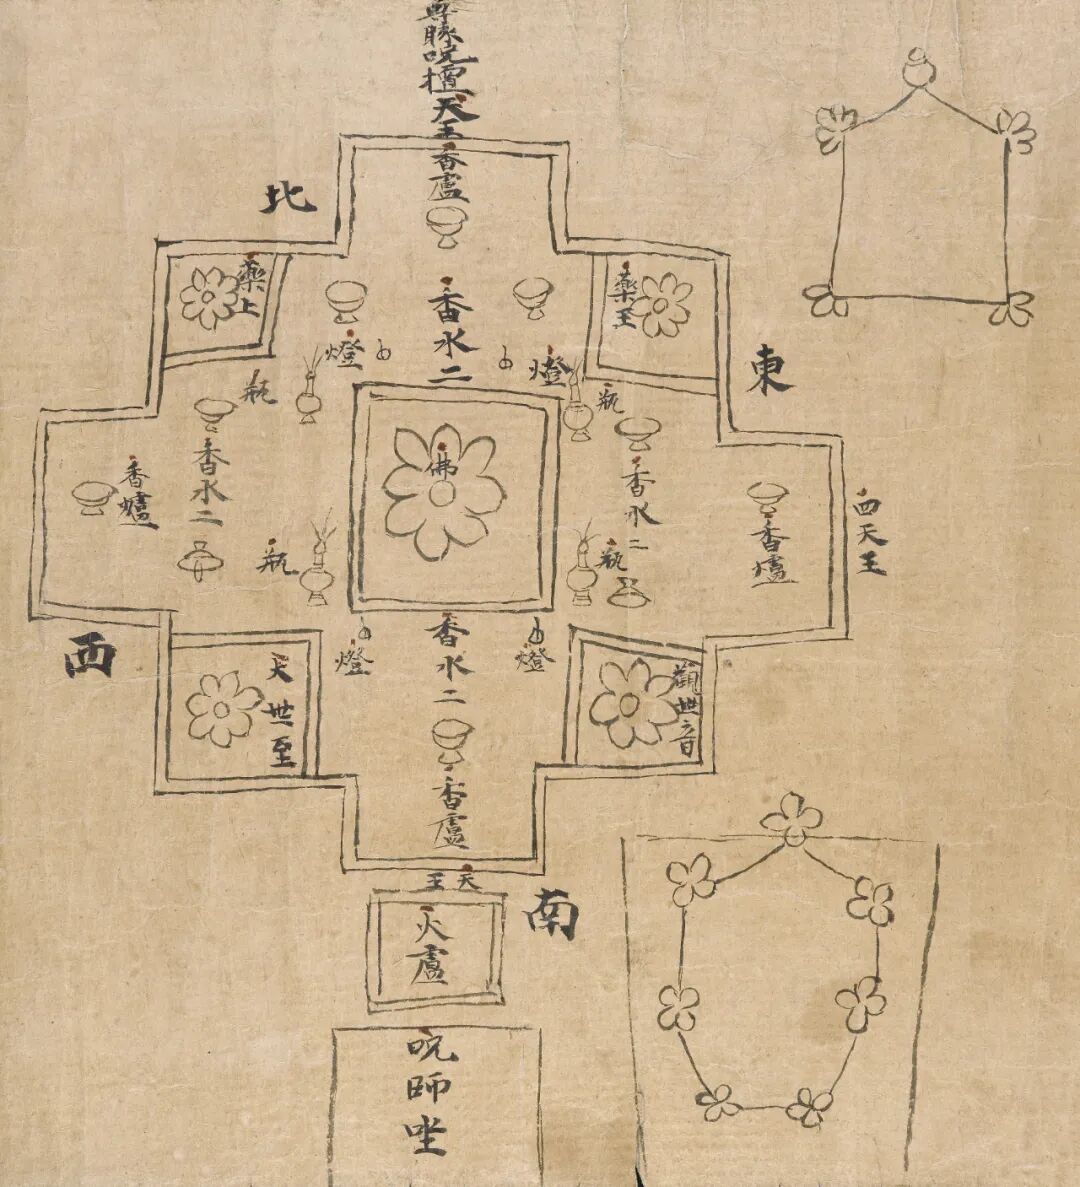 尊勝咒壇
天王
香爐
北
藥上
藥王
香水二
燈
燈
瓶
瓶
東
佛
香爐
香水二
香水二
香爐
四天王
瓶
瓶
西
燈
燈
香水二
大世至
觀世音
香盧
天王
南
火盧
咒師坐